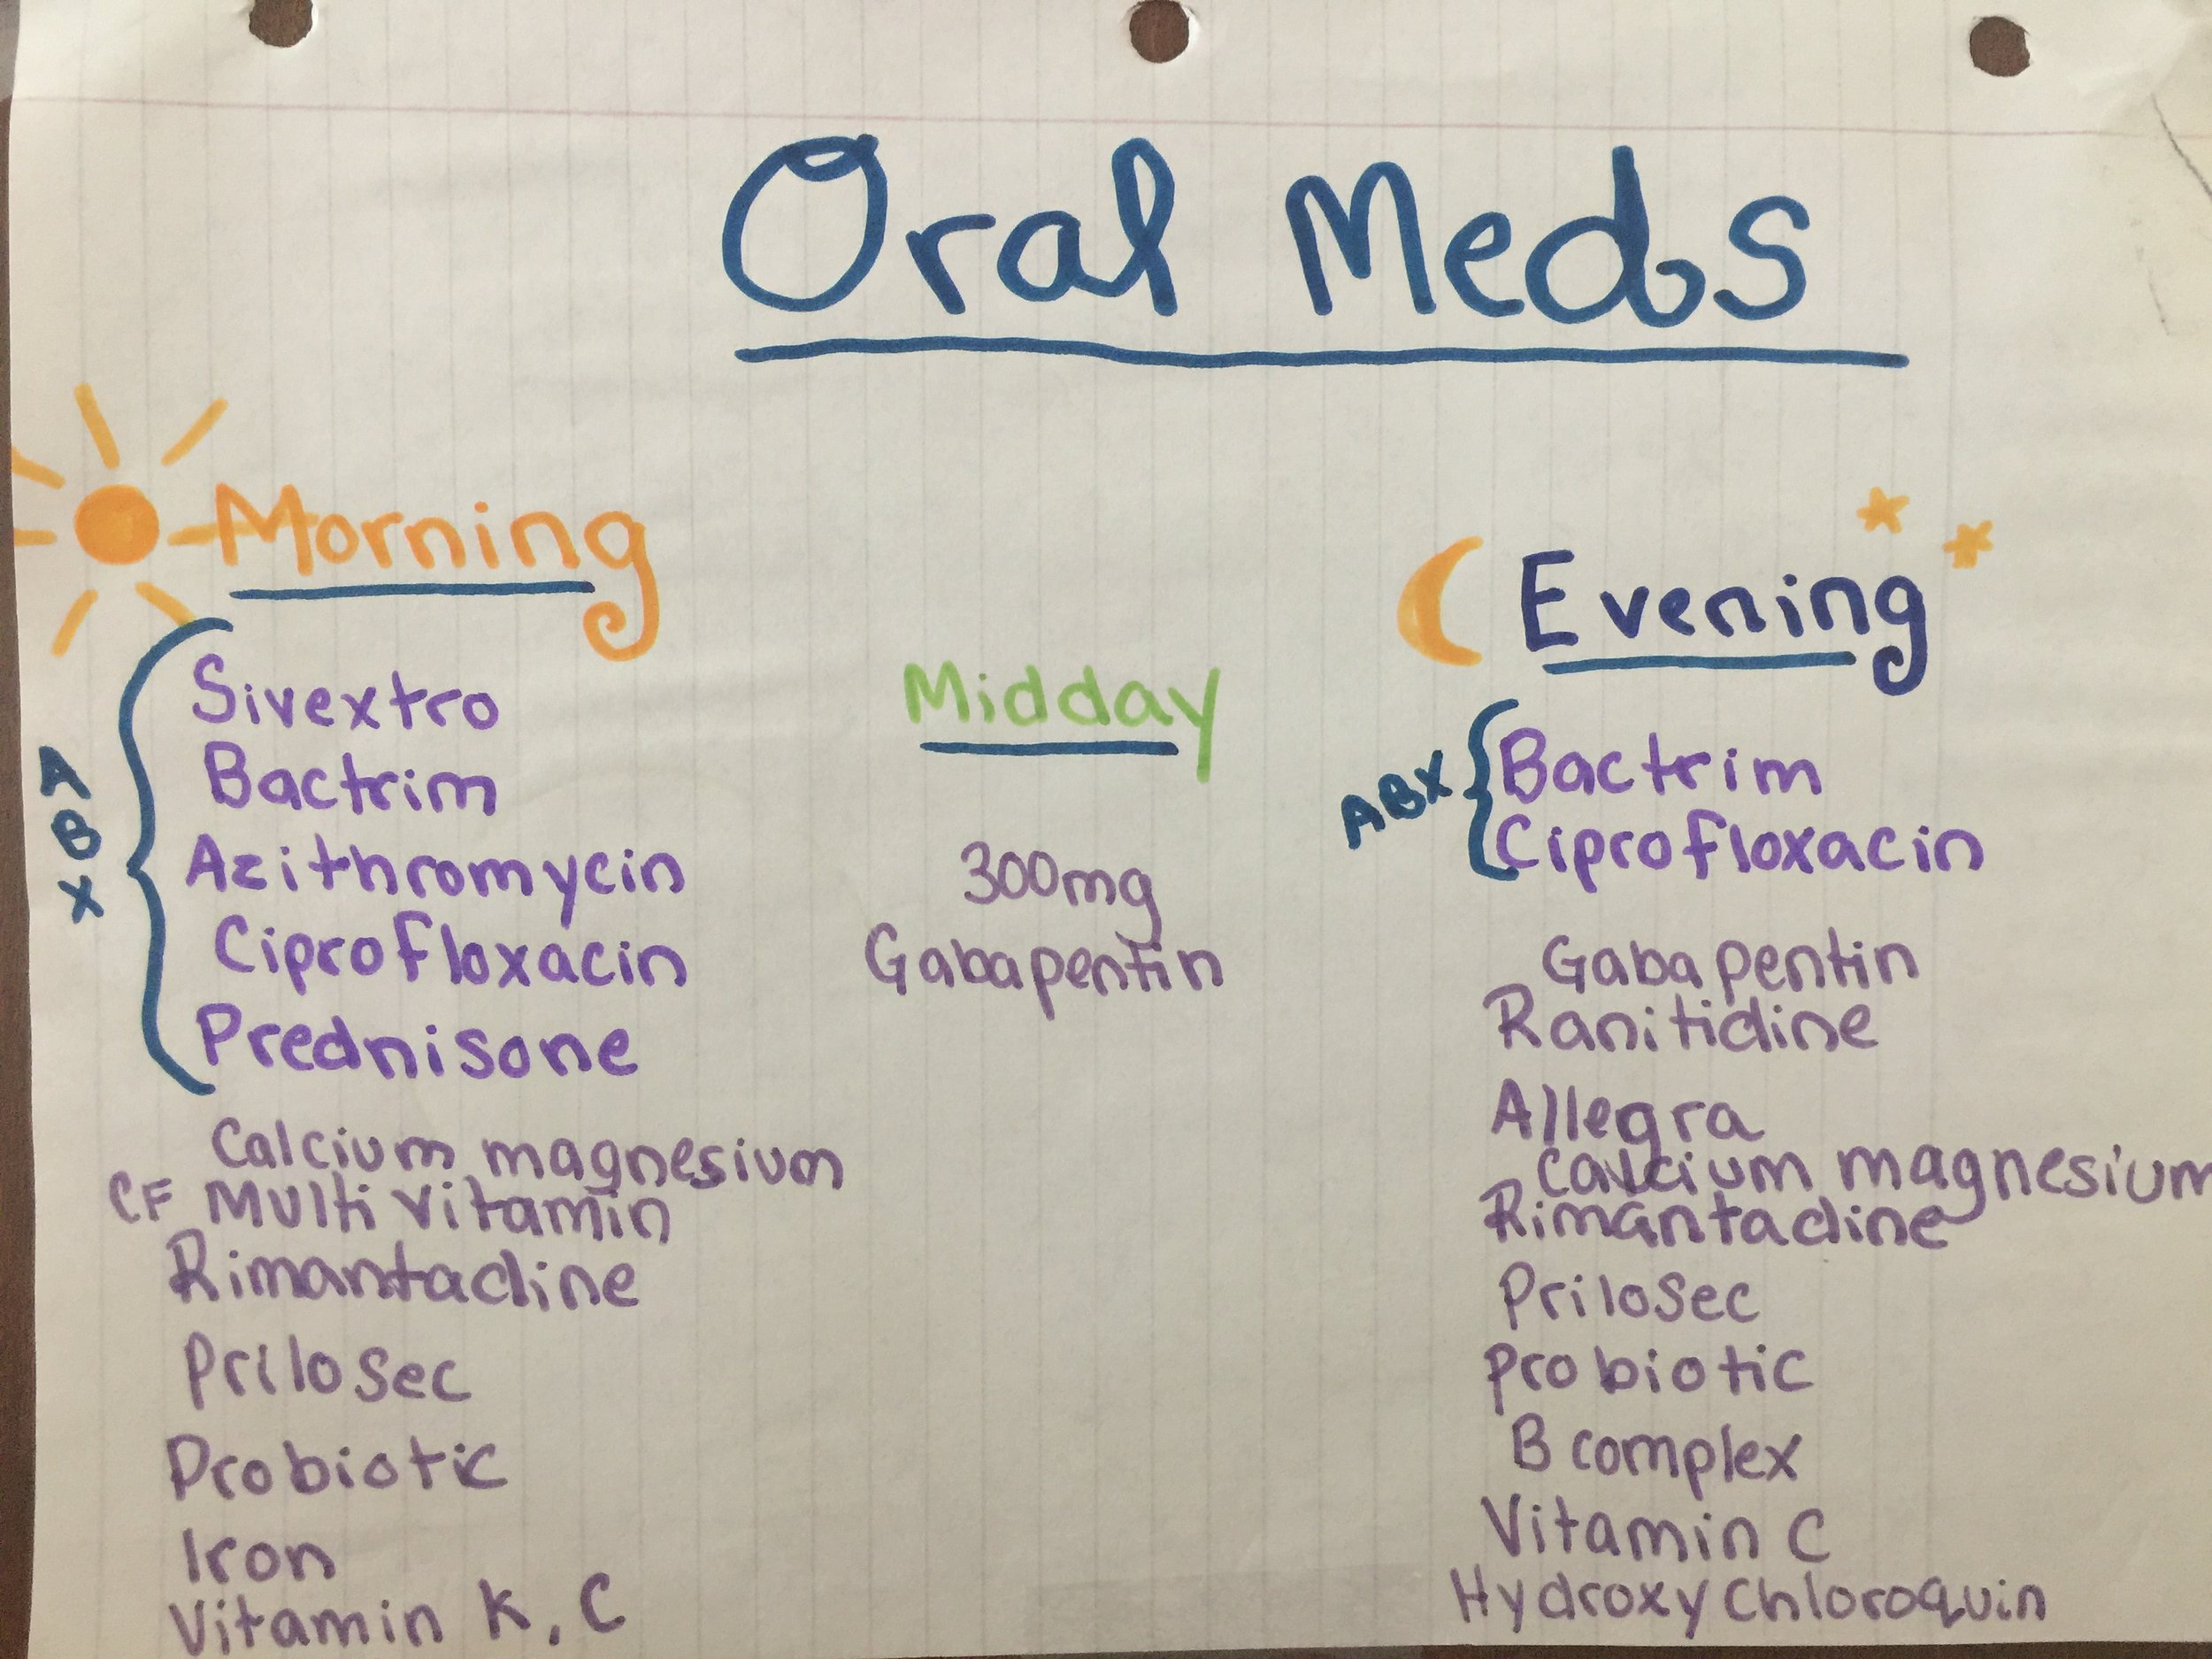 Oral Meds
Morning
ABX
Sivextro
Bactrim
Azithromycin
Ciprofloxacin
Prednisone
Calcium magnesium
CF Multi vitamin
Rimantadine
Prilosec
Probiotic
Iron
Vitamin K, C
Midday
300mg
Gabapentin
Evening
ABX
Bactrim
Ciprofloxacin
Gabapentin
Ranitidine
Allegra
Calcium magnesium
Rimantadine
Prilosec
probiotic
B complex
Vitamin C
Hydroxychloroquin